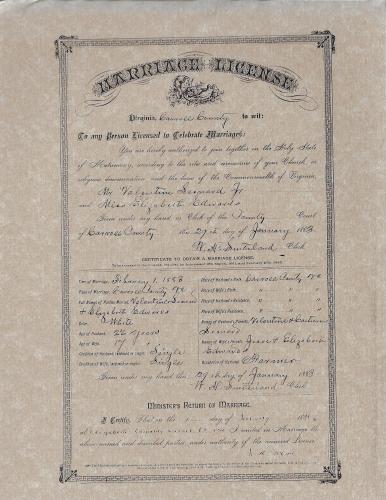 MARRIAGE LICENSE
Virginia, Carroll County to wit:
To any Person Licensed to Celebrate Marriages:
You are hereby authorized to join together in the Holy State
of Matrimony, according to the rites and ceremonies of your Church, or
religious denomination and the laws of the Commonwealth of Virginia,
Mr Valentine Leonard Jr
and Miss Elizabeth Edwards
Given under my hand, as Clerk of the County Court
of Carroll County this 29th day of January 1883
Clerk
CERTIFICATE TO OBTAIN A MARRIAGE LICENSE.
Time of Marriage, February 1, 1883
Place of Marriage, Carroll County Va
Full Names of Parties Married, Valentine Leonard
& Elizabeth Edwards
Color, White
Age of Husband, 22 years
Age of Wife, 17 "
Condition of Husband, widowed or single, Single
Condition of Wife, widowed or single, Single
Place of Husband's Birth, Carroll County Va
Place of Wife's Birth, " " "
Place of Husband's Residence, " " "
Place of Wife's Residence, " " "
Names of Husband's Parents, Valentine &
Leonard
Names of Wife's Parents, & Elizabeth
Edwards
Occupation of Husband, Farmer
Given under my hand this 29th day of January 1883
Clerk
MINISTER'S RETURN OF MARRIAGE.
I Certify, That on the day of
I united in Marriage the
above named and described parties, under authority of the annexed License